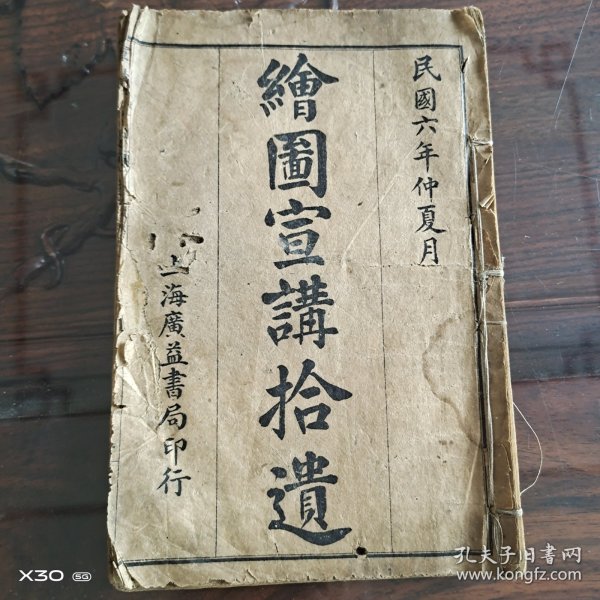 民國六年仲夏月
繪圖宣講拾遺
上海廣益書局印行
X30 5G
孔夫子旧書网
www.kongfz.com